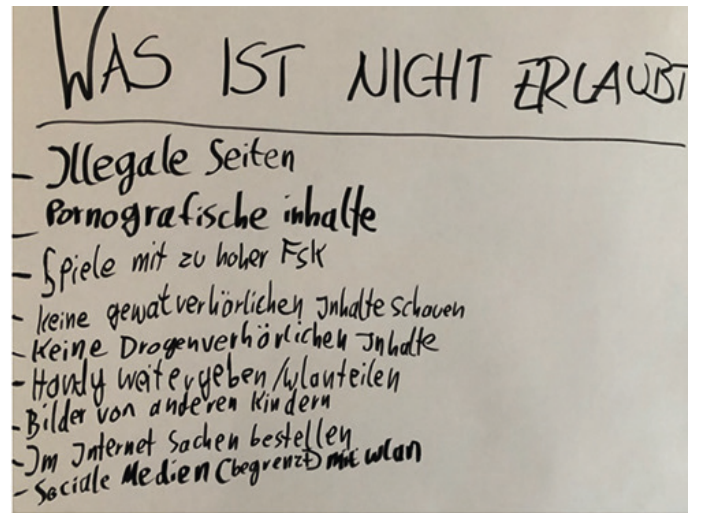 WAS IST NICHT ERLAUBT
- Illegale Seiten
- Pornografische inhalte
- Spiele mit zu hoher FSK
- keine gewatverhörlichen Inhalte schauen
- Keine Drogenverhörlichen Inhalte
- Handy weitergeben/wlanteilen
- Bilder von anderen Kindern
- Im Internet Sachen bestellen
- Sociale Medien (begrenzt) mit wlan